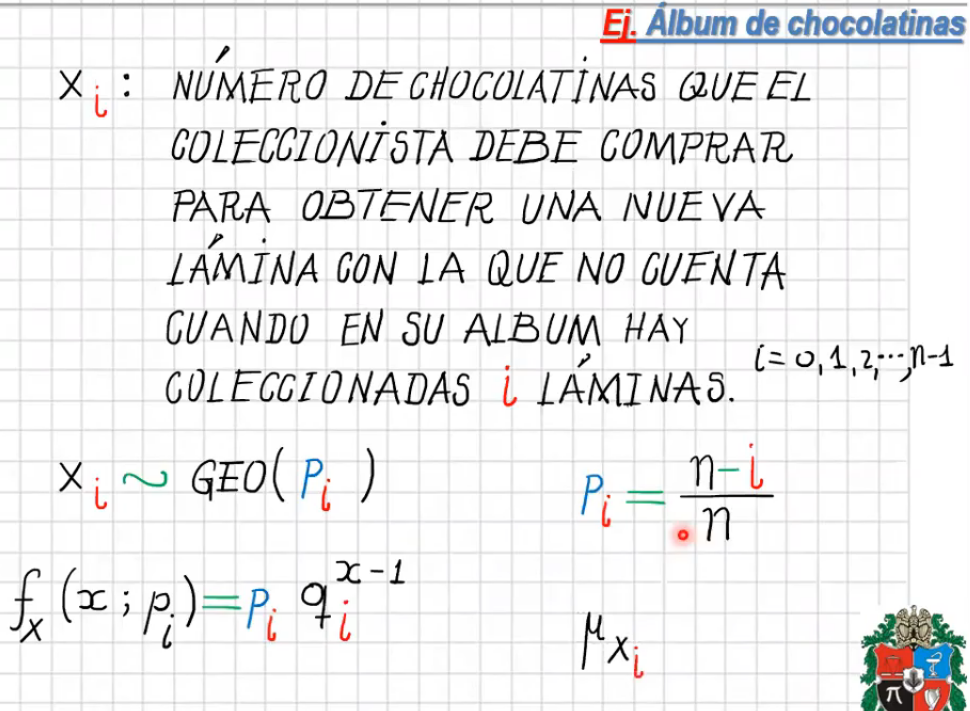 Ej. Álbum de chocolatinas
Xi: NÚMERO DE CHOCOLATINAS QUE EL
COLECCIONISTA DEBE COMPRAR
PARA OBTENER UNA NUEVA
LÁMINA CON LA QUE NO CUENTA
CUANDO EN SU ALBUM HAY
COLECCIONADAS i LÁMINAS. i = 0, 1, 2, ..., n-1
Xi ~ GEO(Pi) Pi = (n-i)/n
fX(x; pi) = Pi qi^(x-1) μXi
π